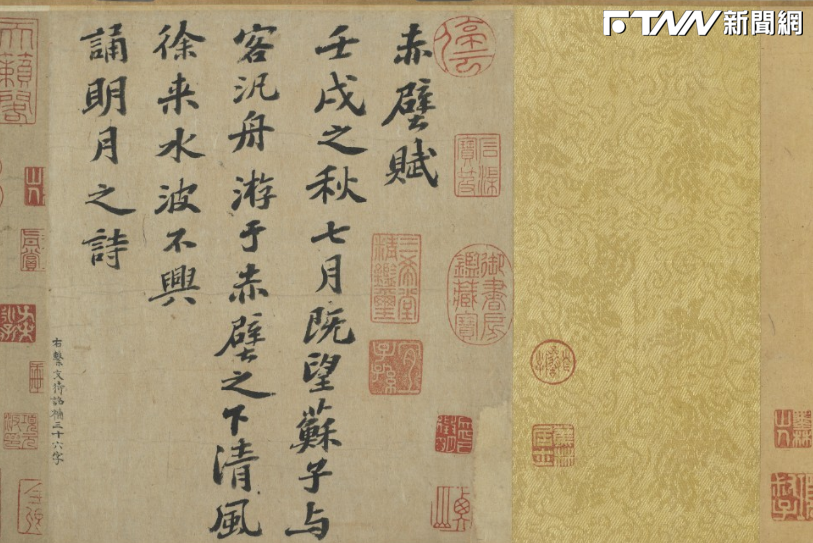 FTNN新聞網
赤壁賦
壬戌之秋七月既望蘇子与
客汎舟游于赤壁之下清風
徐来水波不興
誦明月之詩
右繫文待詔補三十六字
御書房鑑藏寶
三希堂精鑑璽
宜子孫